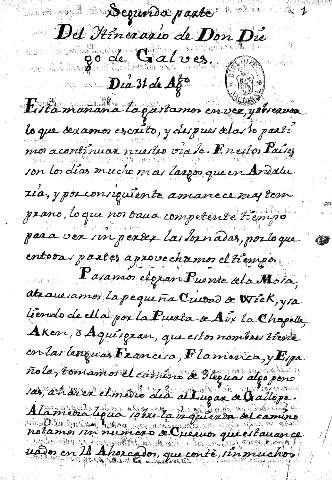 Segunda parte
Del Itinerario de Don Die
go de Galves.
Dia 31 de Agto
Esta mañana la gastamos en ver, y observar
lo que dexamos escrito, y despues de las 10 parti
mos a continuar nuestro viaje. En estos Paises
son los dias mucho mas largos que en Andalu
zia, y por consiguiente amanece mas tem
prano, lo que nos dava competente tiempo
para ver sin perder las Jornadas, por lo que
en todas partes aprovechamos el tiempo.
Pasamos el gran Puente de la Mosa,
atravesamos la pequeña Ciudad de Wiek, y sa
liendo de ella por la Puerta de Aix la Chapelle,
Aken, ò Aquisgran, que estos nombres tiene
en las lenguas Francesa, Flamenca, y Espa
ñola, tomamos el camino de 3 leguas algo peno
sas, a hazer el medio dia al Lugar de Gallope.
A la media legua sobre la izquierda del camino
notamos un numero de Cuervos que estavan ce
vados en 11 Ahorcados, que conté, sin muchos